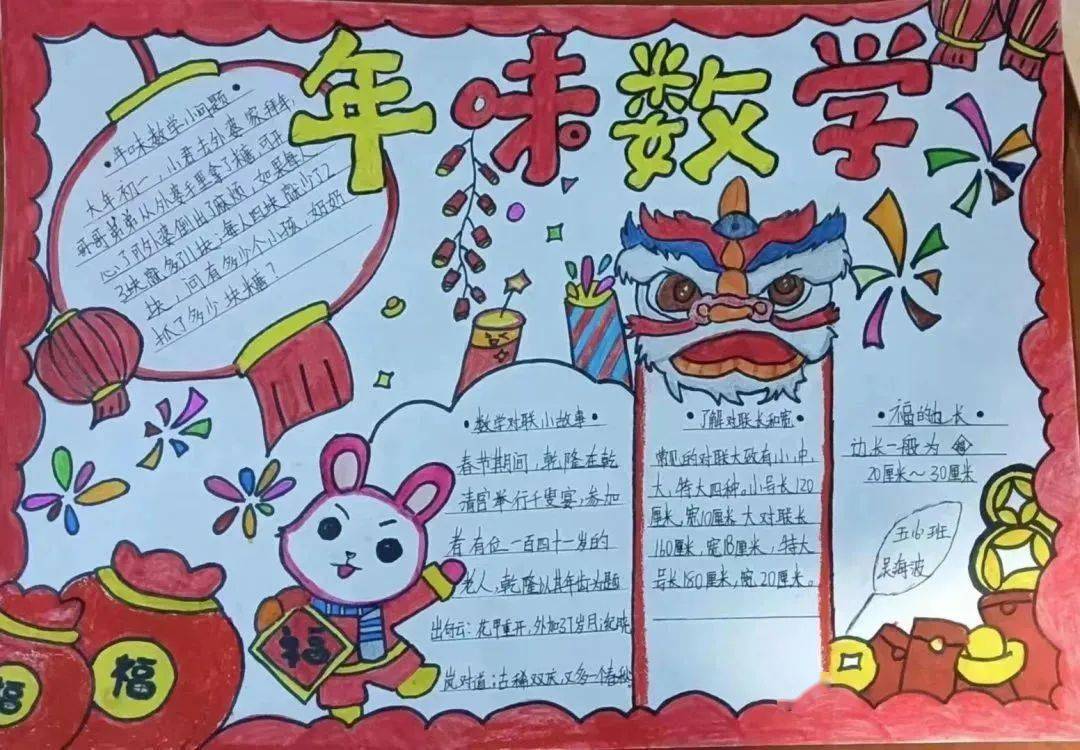 年味数学
•年味数学小问题•
大年初一，小君去外婆家拜年，
哥哥弟弟从外婆手里拿了糖可开
心了可外婆倒出了麻烦，如果每人
3块就多了1块；每人四块就少了2
块，问有多少个小孩，奶奶
抓了多少块糖？
•数学对联小故事•
春节期间，乾隆在乾
清宫举行千叟宴，参加
者有位一百四十一岁的
老人，乾隆以其年齿为题
出句云：花甲重开，外加37岁月；纪晓
岚对道：古稀双庆，又多一个春秋
•了解对联长和宽•
常见的对联大致有小,中,
大,特大四种。小号长120
厘米,宽10厘米 大对联长
160厘米,宽18厘米,特大
号长180厘米,宽20厘米。
•福的边长•
边长一般为
20厘米～30厘米
五16班
吴海波
福
福
福